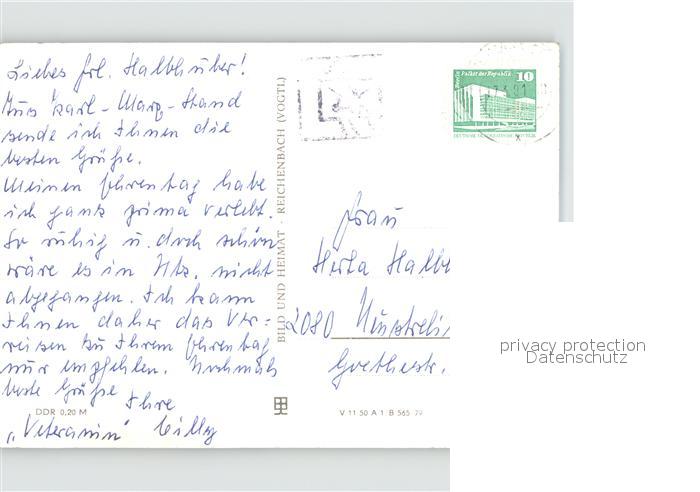 Liebes Frl. Halbhuber!
Aus Karl-Marx-Stand
sende ich Ihnen die
besten Grüße.
Meinen Ehrentag habe
ich ganz prima verlebt.
So ruhig u. doch schön
wäre es in Ntz. nicht
abgegangen. Ich kann
Ihnen daher das Ver-
reisen zu Ihrem Ehrentag
nur empfehlen. Nochmals
beste Grüße
Ihre
„Veteranin"
DDR 0,20 M
BILD UND HEIMAT · REICHENBACH (VOGTL)
V 11 50 A 1 B 565 79
Berlin Palast der Republik
10
DEUTSCHE DEMOKRATISCHE REPUBLIK
Frau
Herta Halb
2080 Neustreli
Goethestr.
privacy protection
Datenschutz